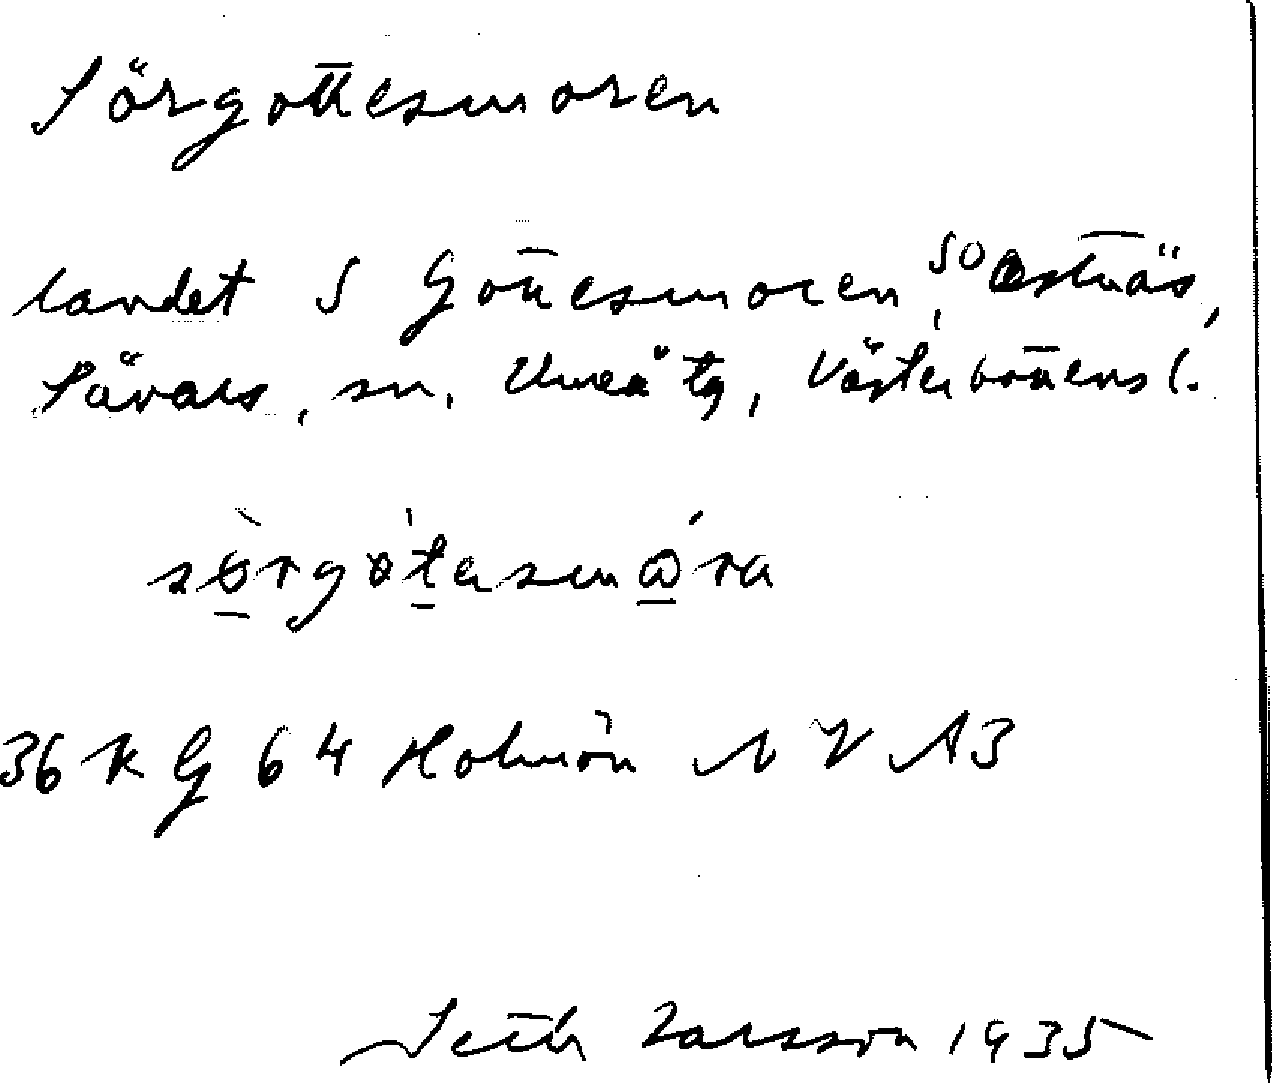 Sörgottesmoren
landet S Gottesmoren, SO Östnäs,
Sävars, sn, Umeå tg, Västerbottens l.
sørgotesmωra
36 K G 64 Holmön N V A3
Seth Larsson 1935